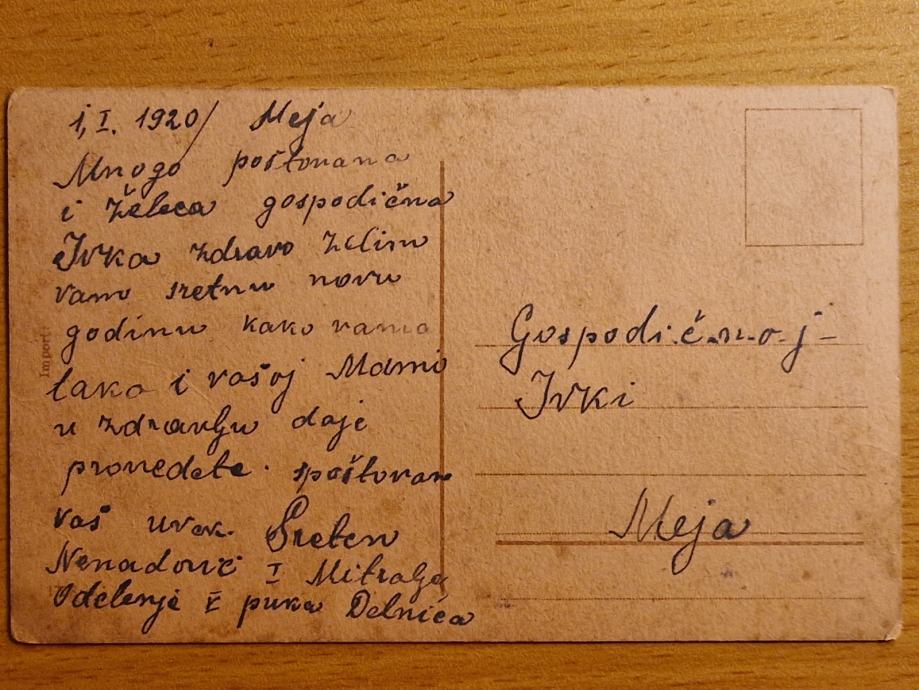 1, I. 1920/ Meja
Mnogo poštovana
i Želeca gospodična
Ivka zdravo zelim
vam sretnu novu
godinu kako vama
lako i vašoj Mami
u zdravlju daje
provedete. spoštovan
vaš uvek. Sreten
Nenadović I Mitralje
Odelenje puka Delnica
Import:
Gospodičnoj-
Ivki
Meja